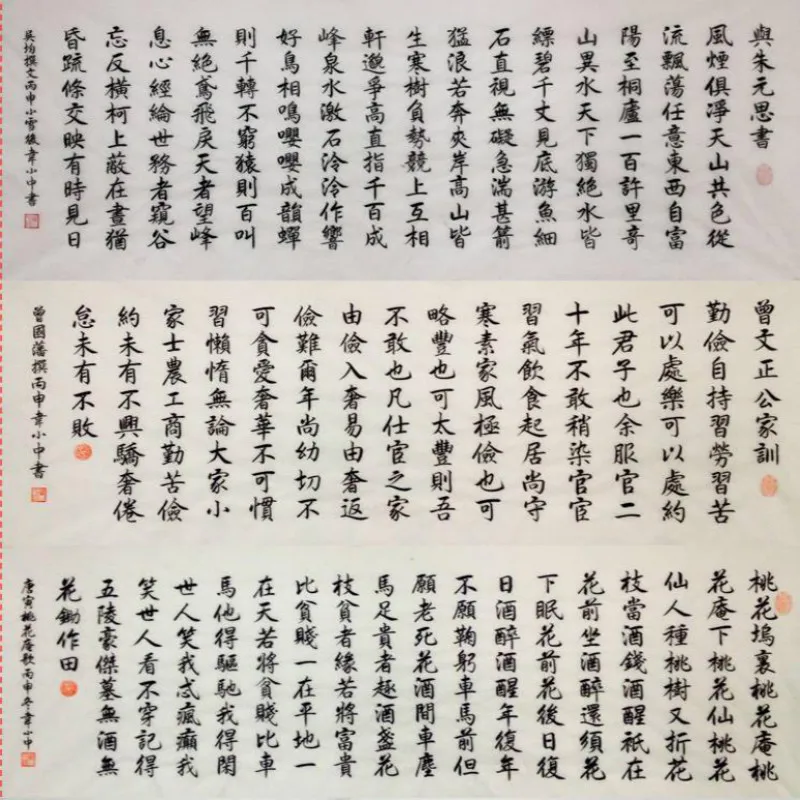 與朱元思書
風煙俱淨天山共色從
流飄蕩任意東西自富
陽至桐廬一百許里奇
山異水天下獨絕水皆
縹碧千丈見底游魚細
石直視無礙急湍甚箭
猛浪若奔夾岸高山皆
生寒樹負勢競上互相
軒邈爭高直指千百成
峰泉水激石泠泠作響
好鳥相鳴嚶嚶成韻蟬
則千轉不窮猿則百叫
無絕鳶飛戾天者望峰
息心經綸世務者窺谷
忘反橫柯上蔽在晝猶
昏疏條交映有時見日
吳均撰文丙申小雪後韋小中書
曾文正公家訓
勤儉自持習勞習苦
可以處樂可以處約
此君子也余服官二
十年不敢稍染官宦
習氣飲食起居尚守
寒素家風極儉也可
略豐也可太豐則吾
不敢也凡仕宦之家
由儉入奢易由奢返
儉難爾年尚幼切不
可貪愛奢華不可慣
習懶惰無論大家小
家士農工商勤苦儉
約未有不興驕奢倦
怠未有不敗
曾國藩撰丙申韋小中書
桃花塢裏桃花庵桃
花庵下桃花仙桃花
仙人種桃樹又折花
枝當酒錢酒醒祇在
花前坐酒醉還須花
下眠花前花後日復
日酒醉酒醒年復年
不願鞠躬車馬前但
願老死花酒間車塵
馬足貴者趣酒盞花
枝貧者緣若將富貴
比貧賤一在平地一
在天若將貧賤比車
馬他得驅馳我得閑
世人笑我忒瘋癲我
笑世人看不穿記得
五陵豪傑墓無酒無
花鋤作田
唐寅桃花庵歌丙申冬韋小中